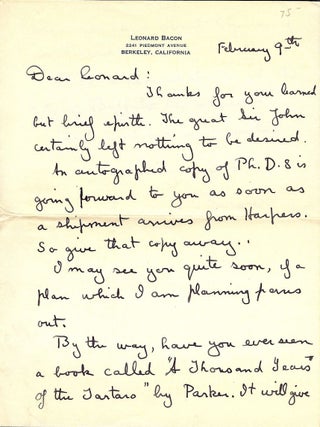 75-
LEONARD BACON
2241 PIEDMONT AVENUE
BERKELEY, CALIFORNIA
February 9th
Dear Leonard:
Thanks for your learned
but brief epistle. The great Sir John
certainly left nothing to be desired.
An autographed copy of Ph. D.s is
going forward to you as soon as
a shipment arrives from Harpers.
So give that copy away..
I may see you quite soon, if a
plan which I am planning pans
out.
By the way, have you ever seen
a book called "A Thousand Years
of the Tartars" by Parker. It will give